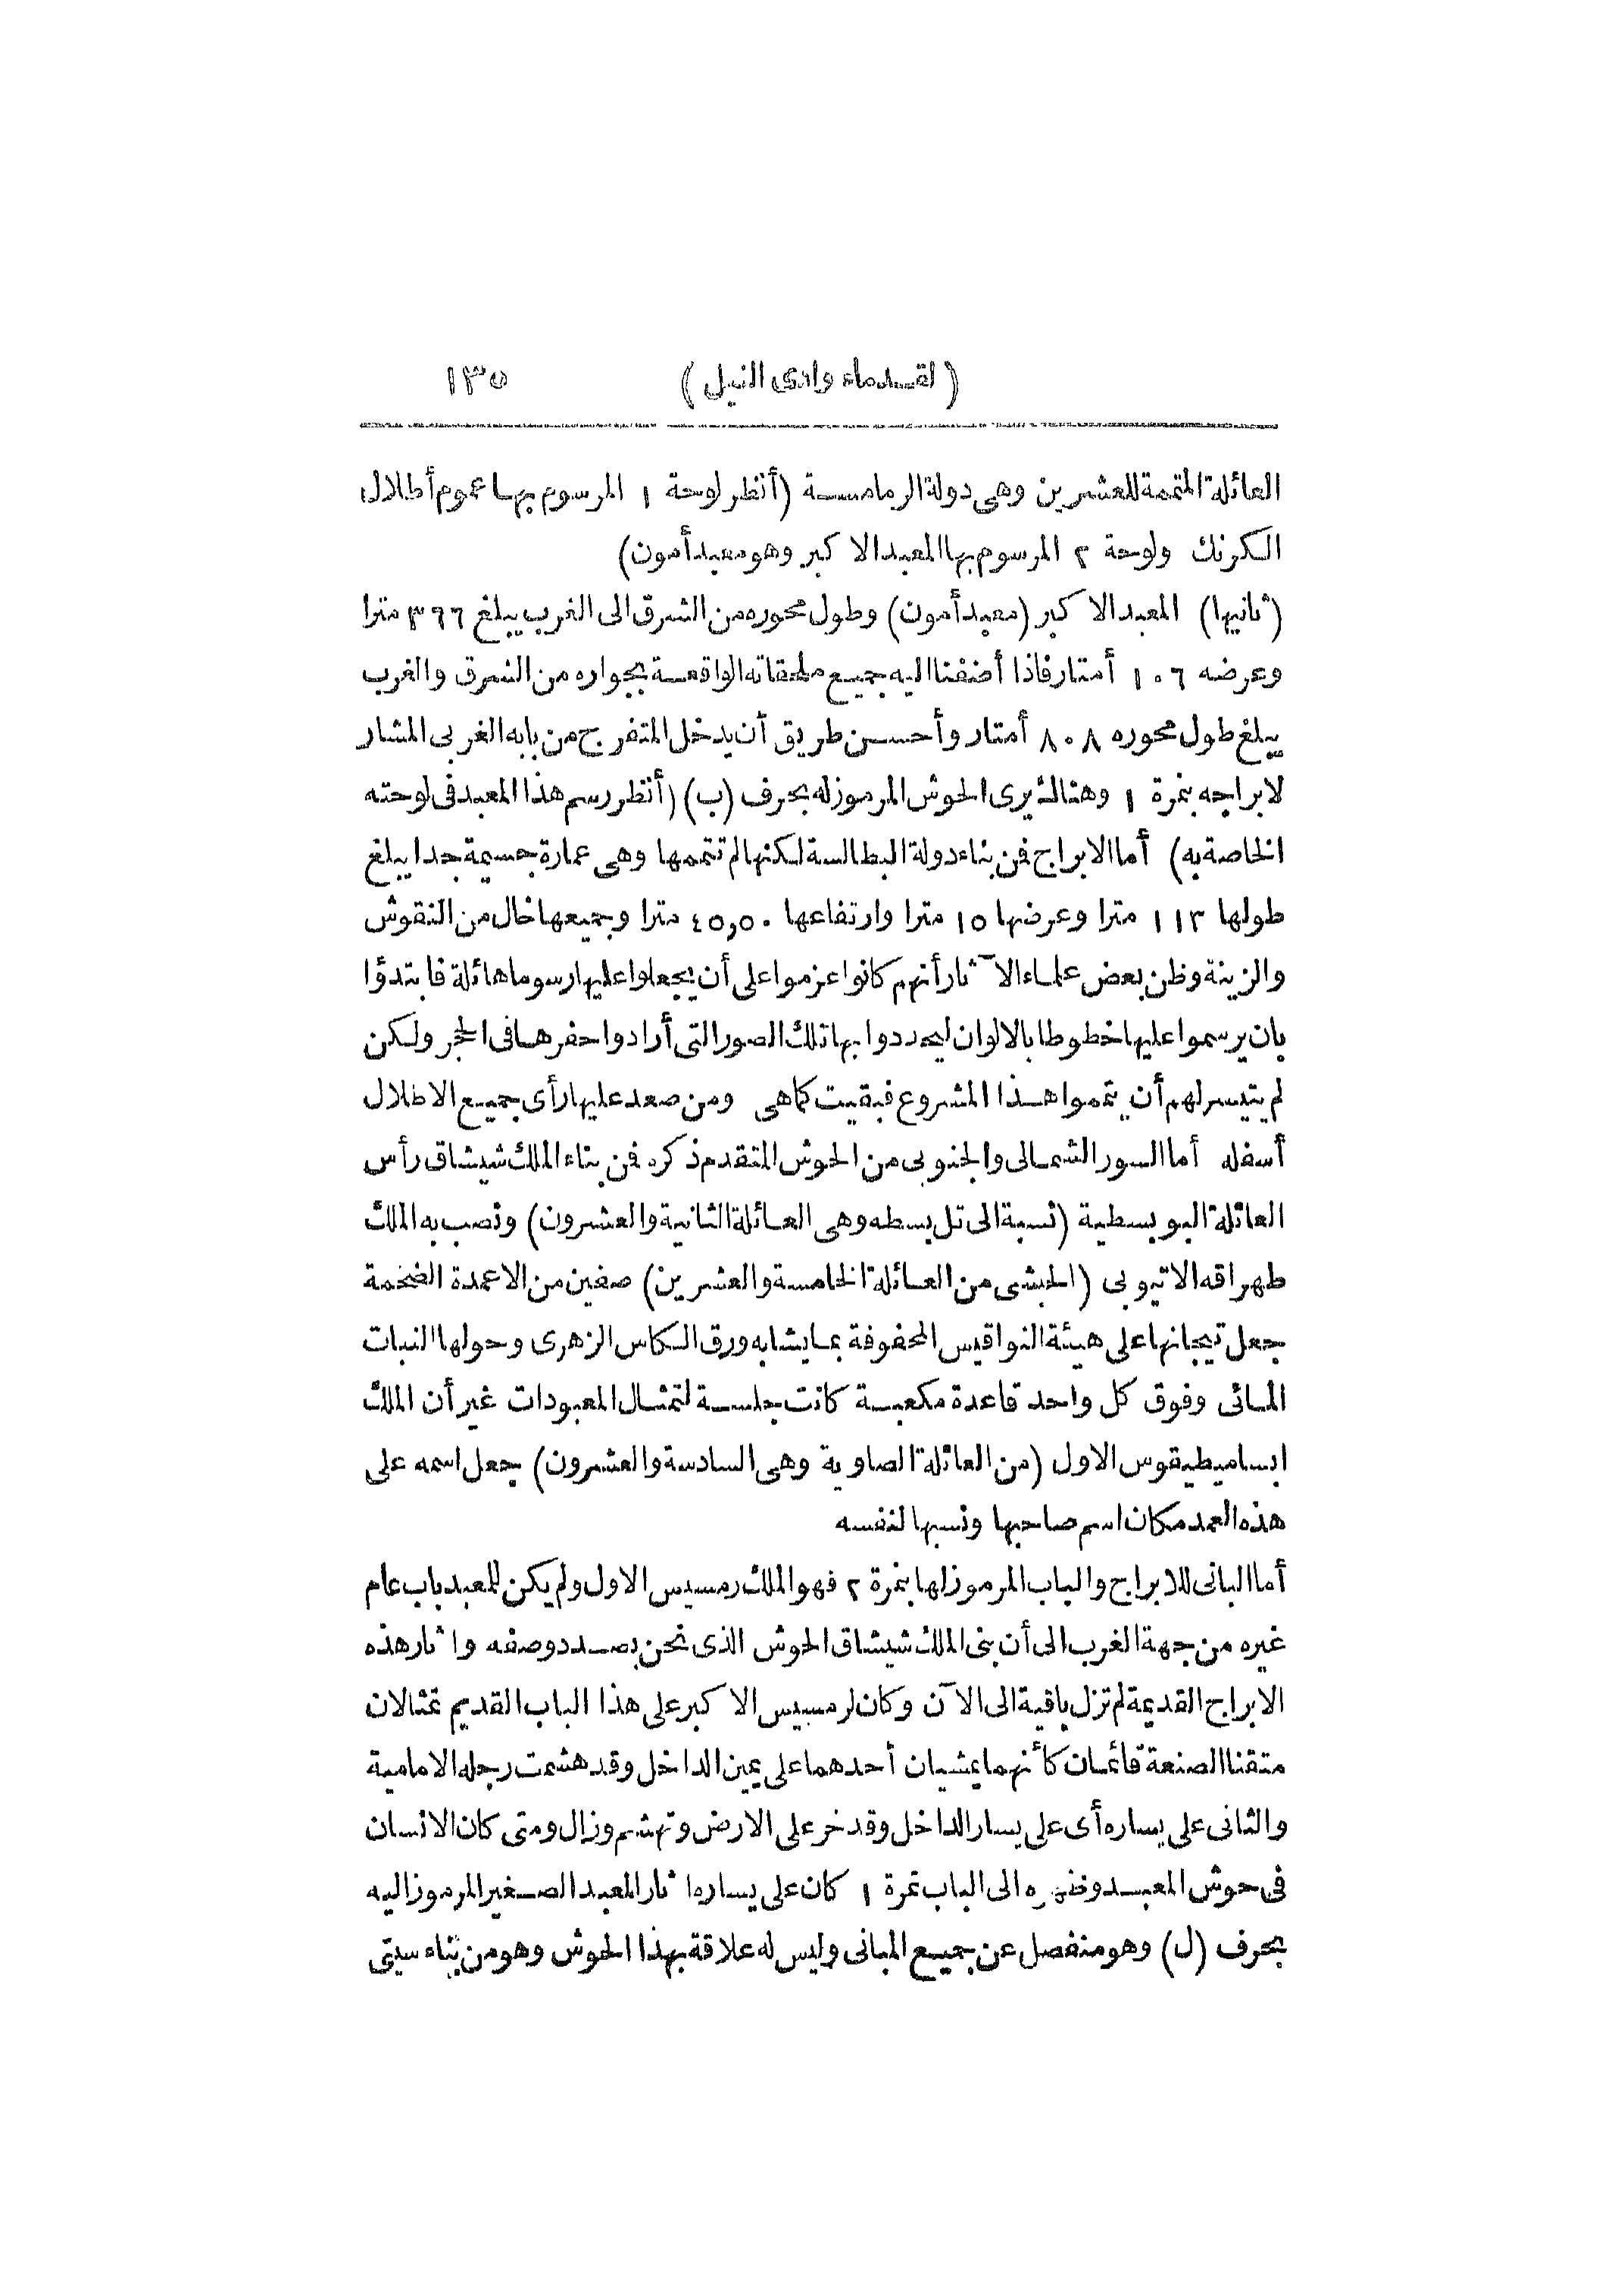 (لقدماء وادى النيل) ١٣٥
العائلة المتممة للعشرين وهى دولة الرمامسة (أنظر لوحة ١ المرسوم بها عموم أطلال
الكرنك ولوحة ٢ المرسوم بها المعبد الاكبر وهو معبد أمون)
(ثانيها) المعبد الاكبر (معبد أمون) وطول محوره من الشرق الى الغرب يبلغ ٣٦٦ مترا
وعرضه ١٠٦ أمتار فاذا أضفنا اليه جميع ملحقاته الواقعة بجواره من الشرق والغرب
يبلغ طول محوره ٨٠٨ أمتار وأحسن طريق أن يدخل المتفرج من بابه الغربى المشار
لابراجه بنمرة ١ وهنالك يرى الحوش المرموز له بحرف (ب) (أنظر رسم هذا المعبد فى لوحته
الخاصة به) أما الابراج فمن بناء دولة البطالسة لكنها لم تتممها وهى عمارة جسيمة جدا يبلغ
طولها ١١٣ مترا وعرضها ١٥ مترا وارتفاعها ٤٥,٥٠ مترا وجميعها خال من النقوش
والزينة وظن بعض علماء الآثار أنهم كانوا عزموا على أن يجعلوا عليها رسوما هائلة فابتدؤا
بان يرسموا عليها خطوطا بالالوان ليحددوا بها تلك الصور التى أرادوا حفرها فى الحجر ولكن
لم يتيسر لهم أن يتمموا هذا المشروع فبقيت كماهى ومن صعد عليها رأى جميع الاطلال
أسفله أما السور الشمالى والجنوبى من الحوش المتقدم ذكره فمن بناء الملك شيشاق رأس
العائلة البوبسطية (نسبة الى تل بسطه وهى العائلة الثانية والعشرون) ونصب به الملك
طهراقه الاتيوبى (الحبشى من العائلة الخامسة والعشرين) صفين من الاعمدة الضخمة
جعل تيجانها على هيئة النواقيس المحفوفة بما يشابه ورق الكاس الزهرى وحولها النبات
المائى وفوق كل واحد قاعدة مكعبة كانت جلسة لتمثال المعبودات غير أن الملك
ابساميطيقوس الاول (من العائلة الصاوية وهى السادسة والعشرون) جعل اسمه على
هذه العمد مكان اسم صاحبها ونسبها لنفسه
أما البانى للابراج والباب المرموز لها بنمرة ٢ فهو الملك رمسيس الاول ولم يكن للمعبد باب عام
غيره من جهة الغرب الى أن بنى الملك شيشاق الحوش الذى نحن بصدد وصفه واثار هذه
الابراج القديمة لم تزل باقية الى الآن وكان لرمسيس الاكبر على هذا الباب القديم تمثالان
متقنا الصنعة قائمان كأنهما يمشيان أحدهما على يمين الداخل وقد هشمت رجله الامامية
والثانى على يساره أى على يسار الداخل وقد خر على الارض وتهشم وزال ومتى كان الانسان
فى حوش المعبد وظهره الى الباب نمرة ١ كان على يساره اثار المعبد الصغير المرموز اليه
بحرف (ل) وهو منفصل عن جميع المبانى وليس له علاقة بهذا الحوش وهو من بناء سيتى